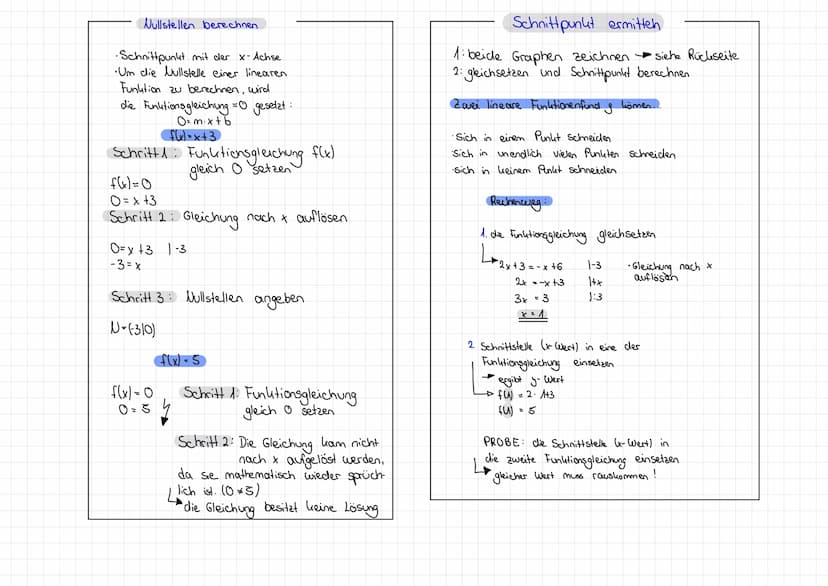 Nullstellen berechnen
· Schnittpunkt mit der x-Achse
· Um die Nullstelle einer linearen
Funktion zu berechnen, wird
die Funktionsgleichung =0 gesetzt:
0=m·x+b
f(x)=x+3
Schritt 1: Funktionsgleichung f(x)
gleich 0 setzen
f(x)=0
0=x+3
Schritt 2: Gleichung nach x auflösen
0=x+3 |-3
-3=x
Schritt 3: Nullstellen angeben
N=(-3|0)
f(x)=5
f(x)=0
0=5
Schritt 1: Funktionsgleichung
gleich 0 setzen
Schritt 2: Die Gleichung kann nicht
nach x aufgelöst werden,
da sie mathematisch wieder sprüch-
lich ist. (0≠5)
die Gleichung besitzt keine Lösung
Schnittpunkt ermitteln
1: beide Graphen zeichnen → siehe Rückseite
2: gleichsetzen und Schnittpunkt berechnen
Zwei lineare Funktionen f und g können
· Sich in einem Punkt schneiden
· Sich in unendlich vielen Punkten schneiden
· sich in keinem Punkt schneiden
Rechenweg:
1. die Funktionsgleichung gleichsetzen
2x+3=-x+6 |-3 · Gleichung nach x
auflösen
2x=-x+3 |+x
3x=3 |:3
x=1
2. Schnittstelle (x-Wert) in eine der
Funktionsgleichung einsetzen
→ ergibt y-Wert
f(1)=2·1+3
f(1)=5
PROBE: die Schnittstelle (x-Wert) in
die zweite Funktionsgleichung einsetzen
gleicher Wert muss rauskommen!